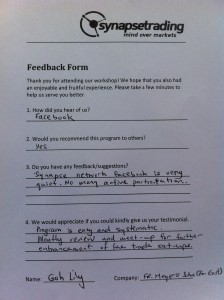 synapsetrading
mind over markets
Feedback Form
Thank you for attending our workshop! We hope that you also had
an enjoyable and fruitful experience. Please take a few minutes to
help us serve you better.
1. How did you hear of us?
Facebook
2. Would you recommend this program to others?
Yes
3. Do you have any feedback/suggestions?
Synapse network Facebook is very
quiet. No many active participation.
4. We would appreciate if you could kindly give us your testimonial.
Program is easy and systematic.
Monthly review and meet-up for further
enhancement of the trade set-ups.
Name: Goh Company: